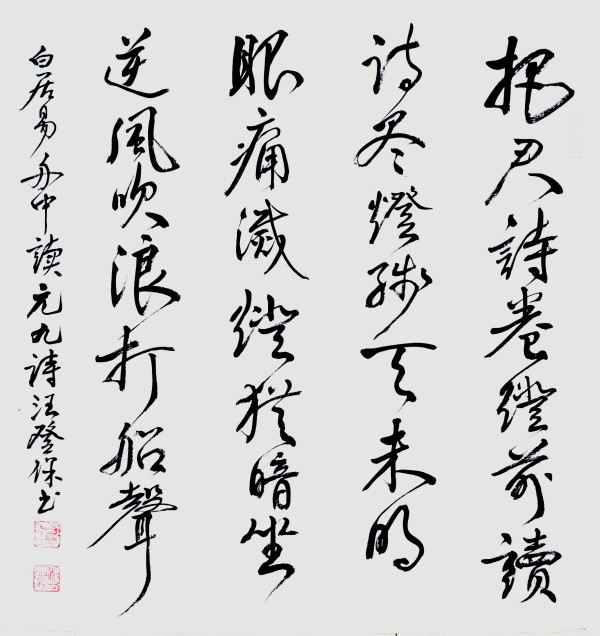 把君詩卷燈前讀
詩尽燈残天未明
眼痛滅燈猶暗坐
逆風吹浪打船聲
白居易舟中讀元九詩汪登保书